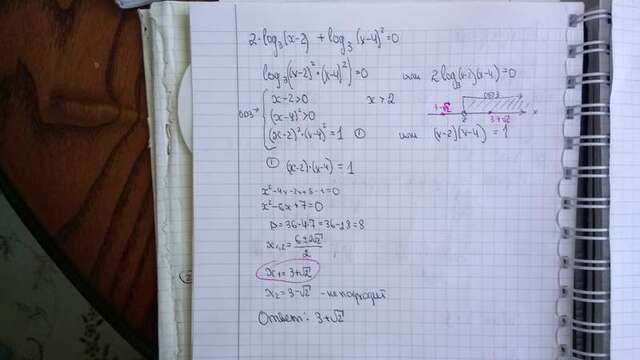 2·log₃(x-2) + log₃(x-4)²=0
log₃((x-2)²·(x-4)²)=0 или 2log₃(x-2)(x-4)=0
x-2>0 x>2
(x-4)²>0
(x-2)²(x-4)²=1 ① или (x-2)(x-4)=1
① (x-2)·(x-4)=1
x²-4x-2x+8-1=0
x²-6x+7=0
D=36-4·7=36-28=8
x₁,₂=(6±2√2)/2
x₁=3+√2
x₂=3-√2 - не подходит
Ответ: 3+√2